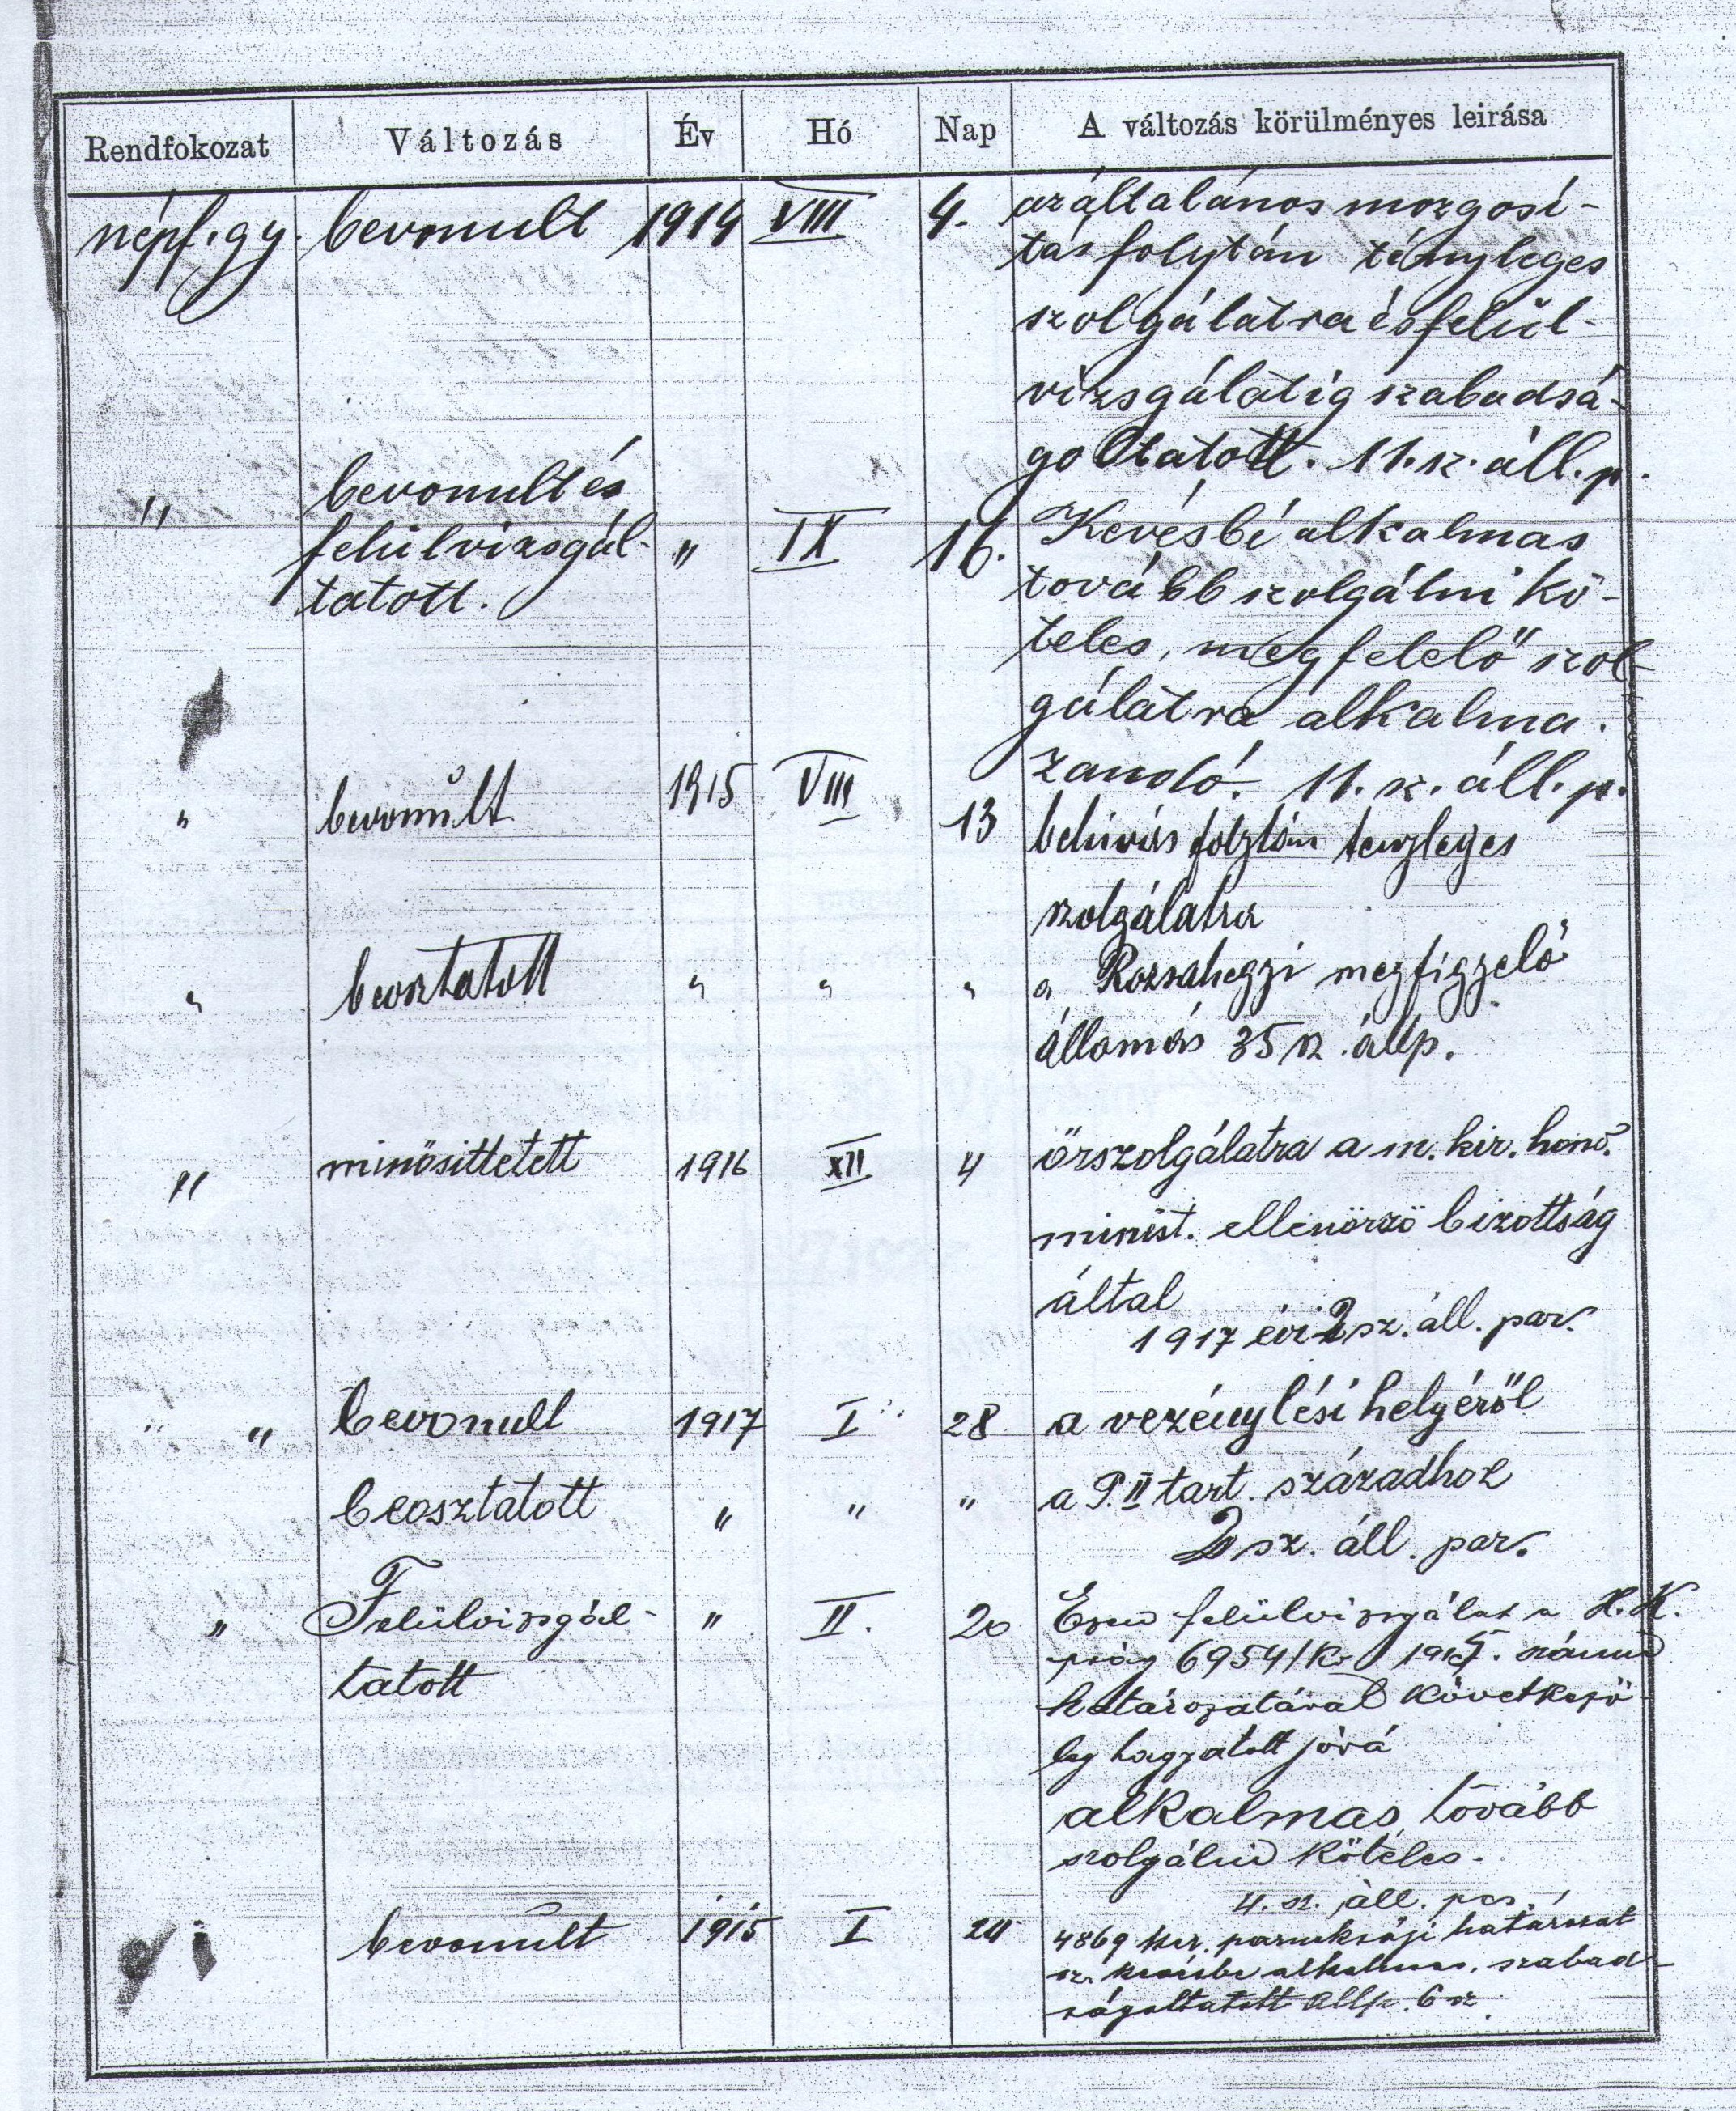 Rendfokozat Változás Év Hó Nap A változás körülményes leirása
népf. gy. bevonult 1914 VIII 4. az általános mozgosi-
tás folytán tényleges
szolgálatra és felül-
vizsgálatig szabadsá-
goltatott. 11. sz. áll. p.
" bevonult és
felülvizsgál- " IX 16. Kevésbé alkalmas
tatott. tovább szolgálni kö-
teles, megfelelő szol-
gálatra alkalma.
zandó. 11. sz. áll. p.
" bevonúlt 1915 VIII 13 behivás folytán tenyleges
szolgálatra
" beosztatott " " " a Rozsahegyi megfigyelő
állomás 35 sz. állp.
" minősittetett 1916 XII 4 őrszolgálatra a m. kir. honv.
minist. ellenörző bizottság
által
1917 évi 2 sz. áll. par.
" bevonult 1917 I 28 a vezénylési helyéről
beosztatott " " " a P. II tart. századhoz
2 sz. áll. par.
" Felülvizsgál- " II. 20 Ezen felülvizsgálat a H. K.
tatott ság 6954/K 1917. számú
határozatával következö-
leg hagyatott jóvá
alkalmas, tovább
szolgálni köteles.
4. sz. áll. par.
bevonult 1915 I 24 4869 ker. parancksági határozat
sz. kevésbe alkalmas, szabad-
ságoltatott Allp. 6 sz